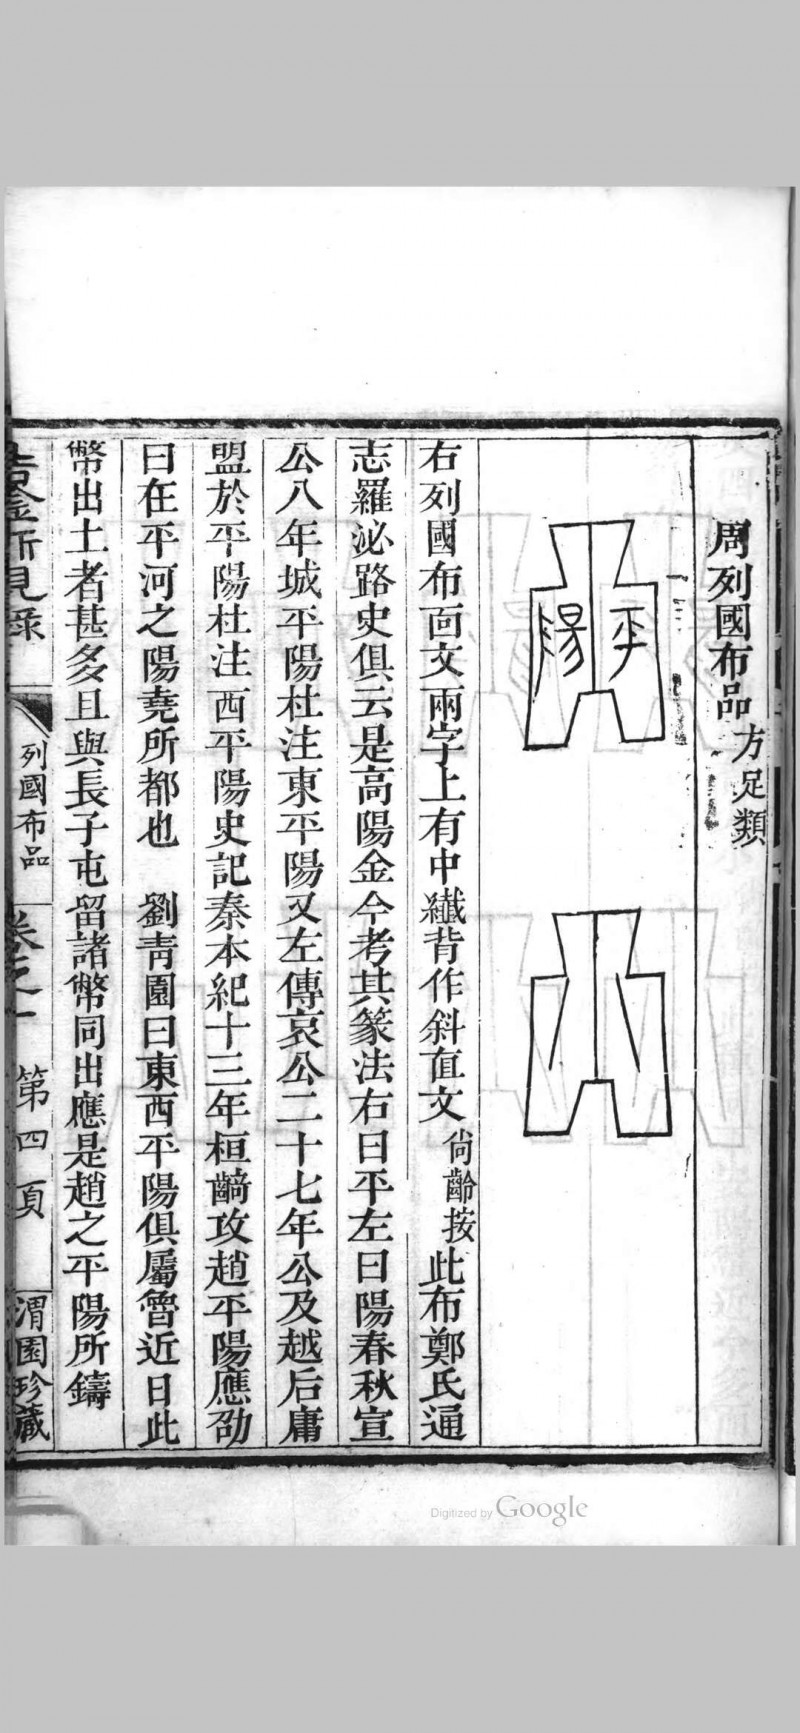 周列國布品 方足類
平
陽
右列國布面文兩字上有中纖背作斜直文 尙齡按 此布鄭氏通
志羅泌路史俱云是高陽金今考其篆法右曰平左曰陽春秋宣
公八年城平陽杜注東平陽又左傳哀公二十七年公及越后庸
盟於平陽杜注西平陽史記秦本紀十三年桓齮攻趙平陽應劭
曰在平河之陽堯所都也 劉青園曰東西平陽俱屬魯近日此
幣出土者甚多且與長子屯留諸幣同出應是趙之平陽所鑄
吉金所見錄 列國布品 卷之一 第四頁 渭園珍藏
Digitized by Google